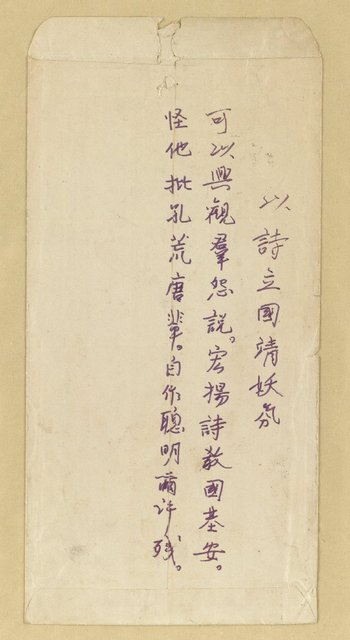 以詩立國靖妖氛
可以興觀羣怨說。宏揚詩教國基安。
怪他批孔荒唐輩。自作聰明爾許殘。